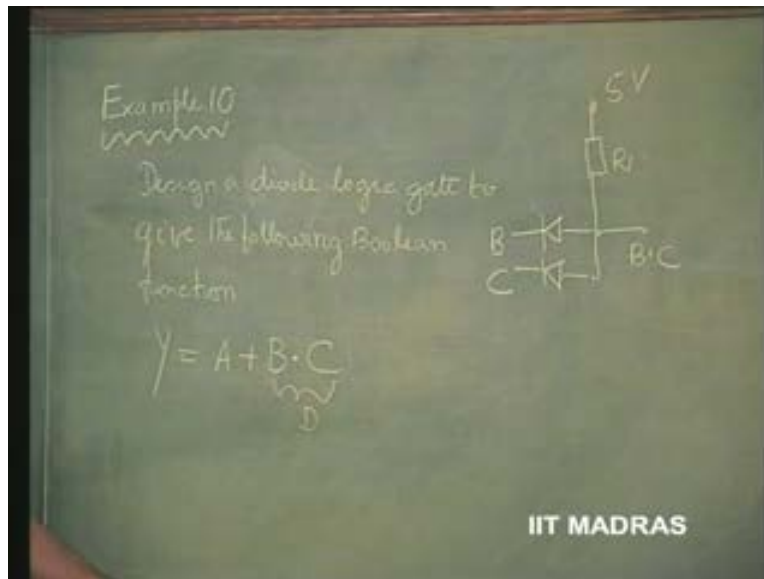 Example 10
Design a diode logic gate to
give the following Boolean
function
Y = A + B · C
D
5V
R1
B
B·C
C
IIT MADRAS